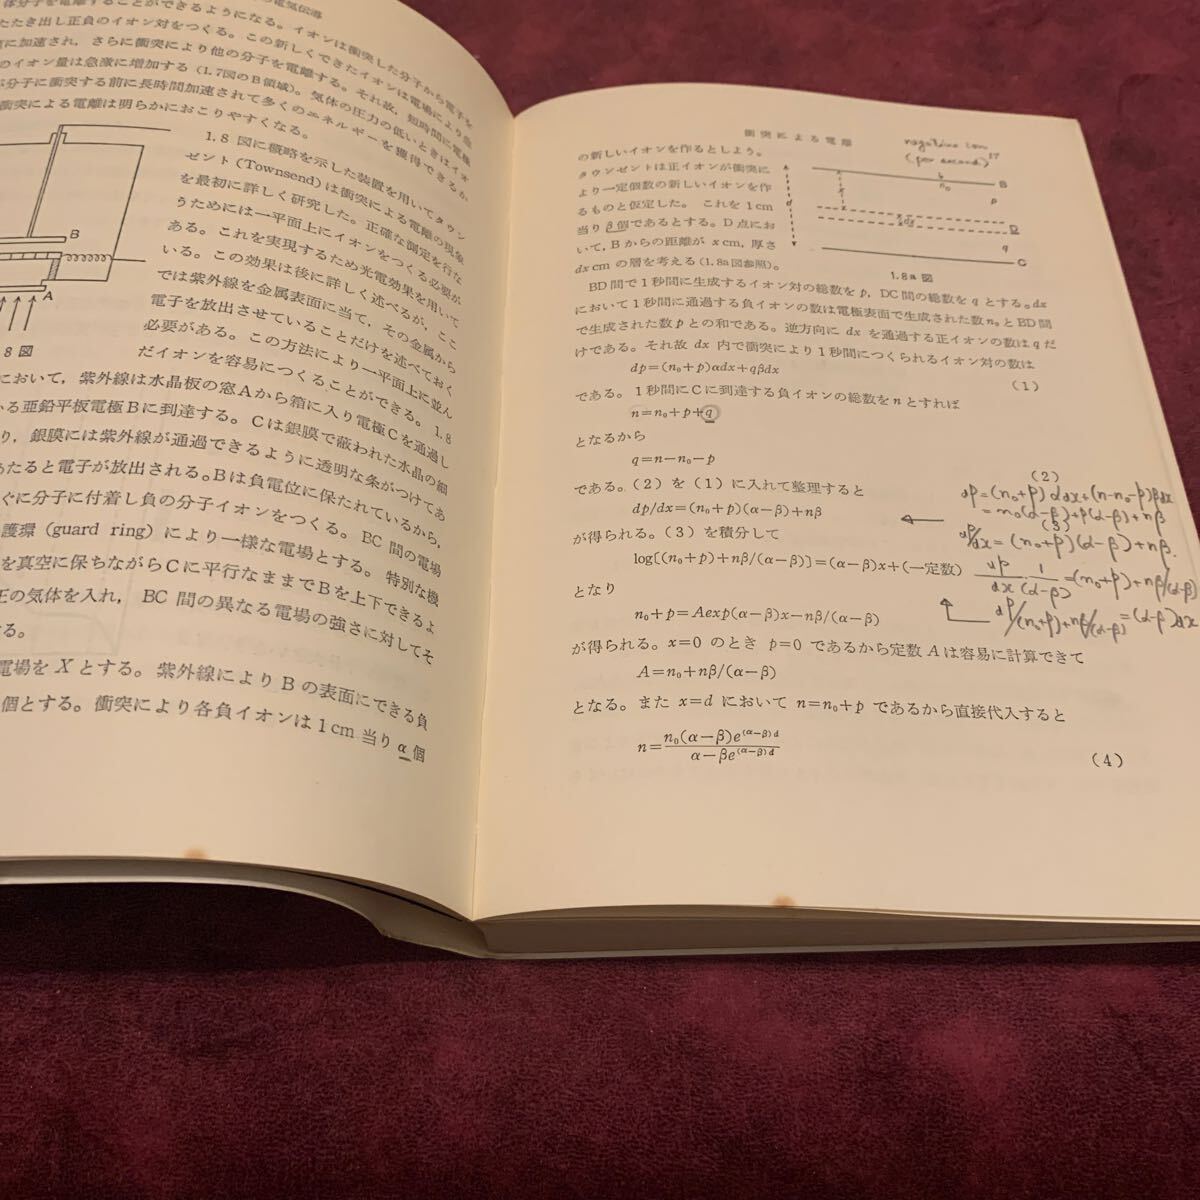 の電気伝導
体分子を電離することができるようになる。イオンは衝突した分子から電子を
たたき出し正負のイオン対をつくる。この新しくできたイオンは電場により急
に加速され，さらに衝突により他の分子を電離する。それ故，短時間に電極
のイオン量は急激に増加する（1.7図のB領域）。気体の圧力の低いときはイオ
が分子に衝突する前に長時間加速されて多くのエネルギーを獲得できるか
衝突による電離は明らかにおこりやすくなる。
1.8 図に概略を示した装置を用いてタウン
ゼント(Townsend)は衝突による電離の現象
を最初に詳しく研究した。正確な測定を行な
うためには一平面上にイオンをつくる必要が
ある。これを実現するため光電効果を用いて
いる。この効果は後に詳しく述べるが，ここ
では紫外線を金属表面に当て，その金属から
電子を放出させていることだけを述べておく
必要がある。この方法により一平面上に並ん
だイオンを容易につくることができる。1.8
B
A
8図
において，紫外線は水晶板の窓Aから箱に入り電極Cを通過し
いる亜鉛平板電極Bに到達する。Cは銀膜で蔽われた水晶の細
り，銀膜には紫外線が通過できるように透明な条がつけてあ
あたると電子が放出される。Bは負電位に保たれているから，
ぐに分子に付着し負の分子イオンをつくる。BC 間の電場
護環(guard ring)により一様な電場とする。特別な機
を真空に保ちながらCに平行なままでBを上下できるよ
圧の気体を入れ，BC 間の異なる電場の強さに対してそ
する。
電場を X とする。紫外線により B の表面にできる負
個とする。衝突により各負イオンは 1cm 当り α 個
衝突による電離
17
negative ion
(per second)
の新しいイオンを作るとしよう。
タウンゼントは正イオンが衝突に
より一定個数の新しいイオンを作
るものと仮定した。これを 1cm
当り β 個であるとする。D 点にお
いて，B からの距離が x cm，厚さ
dx cm の層を考える（1.8a 図参照）。
B
n₀
p
d
x
dx
D
q
C
1.8a 図
BD 間で 1 秒間に生成するイオン対の総数を p，DC 間の総数を q とする。dx
において 1 秒間に通過する負イオンの数は電極表面で生成された数 n₀ と BD 間
で生成された数 p との和である。逆方向に dx を通過する正イオンの数は q だ
けである。それ故 dx 内で衝突により 1 秒間につくられるイオン対の数は
dp=(n₀+p)αdx+qβdx (1)
である。1 秒間に C に到達する負イオンの総数を n とすれば
n=n₀+p+q
となるから
q=n−n₀−p
(2)
である。(2) を (1) に入れて整理すると
dp/dx=(n₀+p)(α−β)+nβ
(3)
が得られる。(3) を積分して
log[(n₀+p)+nβ/(α−β)]=(α−β)x+(一定数)
となり
n₀+p=Aexp(α−β)x−nβ/(α−β)
が得られる。x=0 のとき p=0 であるから定数 A は容易に計算できて
A=n₀+nβ/(α−β)
となる。また x=d において n=n₀+p であるから直接代入すると
n=n₀(α−β)e^(α−β)d / α−βe^(α−β)d (4)
dp=(n₀+p)αdx+(n-n₀-p)βdx
=n₀(α-β)+p(α-β)+nβ
dp/dx=(n₀+p)(α-β)+nβ.
dp/dx 1/(α-β)=(n₀+p)+nβ/(α-β)
dp/(n₀+p)+nβ/(α-β)=(α-β)dx